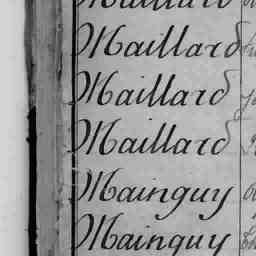 Maillard
Maillard
Maillard
Maillard
Mainguy
Mainguy